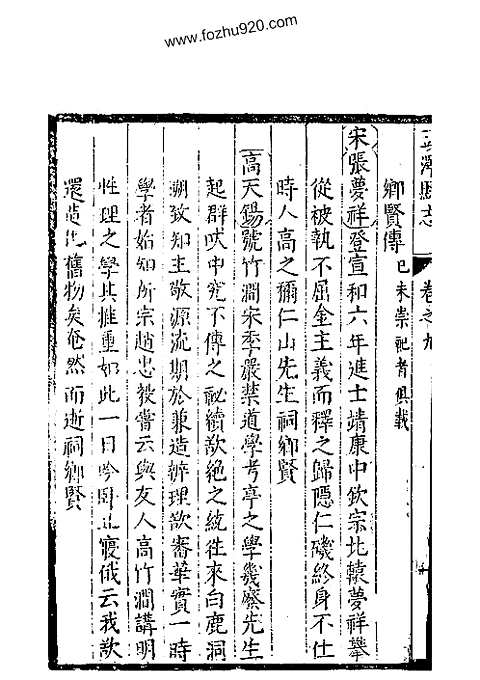 www.fozhu920.com
志
卷之九
鄉賢傳 已未崇祀者俱載
宋張夢祥登宣和六年進士靖康中欽宗北轅夢祥攀
從被執不屈金主義而釋之歸隱仁磯終身不仕
時人高之稱仁山先生祠鄉賢
高天錫號竹澗宋季嚴禁道學考亭之學幾廢先生
起群咲中究不傳之祕續欲絕之統往來白鹿洞
朔致知主敬源流期於兼造辨理欲審華實一時
學者始知所宗趙忠毅嘗云與友人高竹澗講明
性理之學其推重如此一日吟臥正寢俄云我欲
還造化舊物矣奄然而逝祠鄉賢